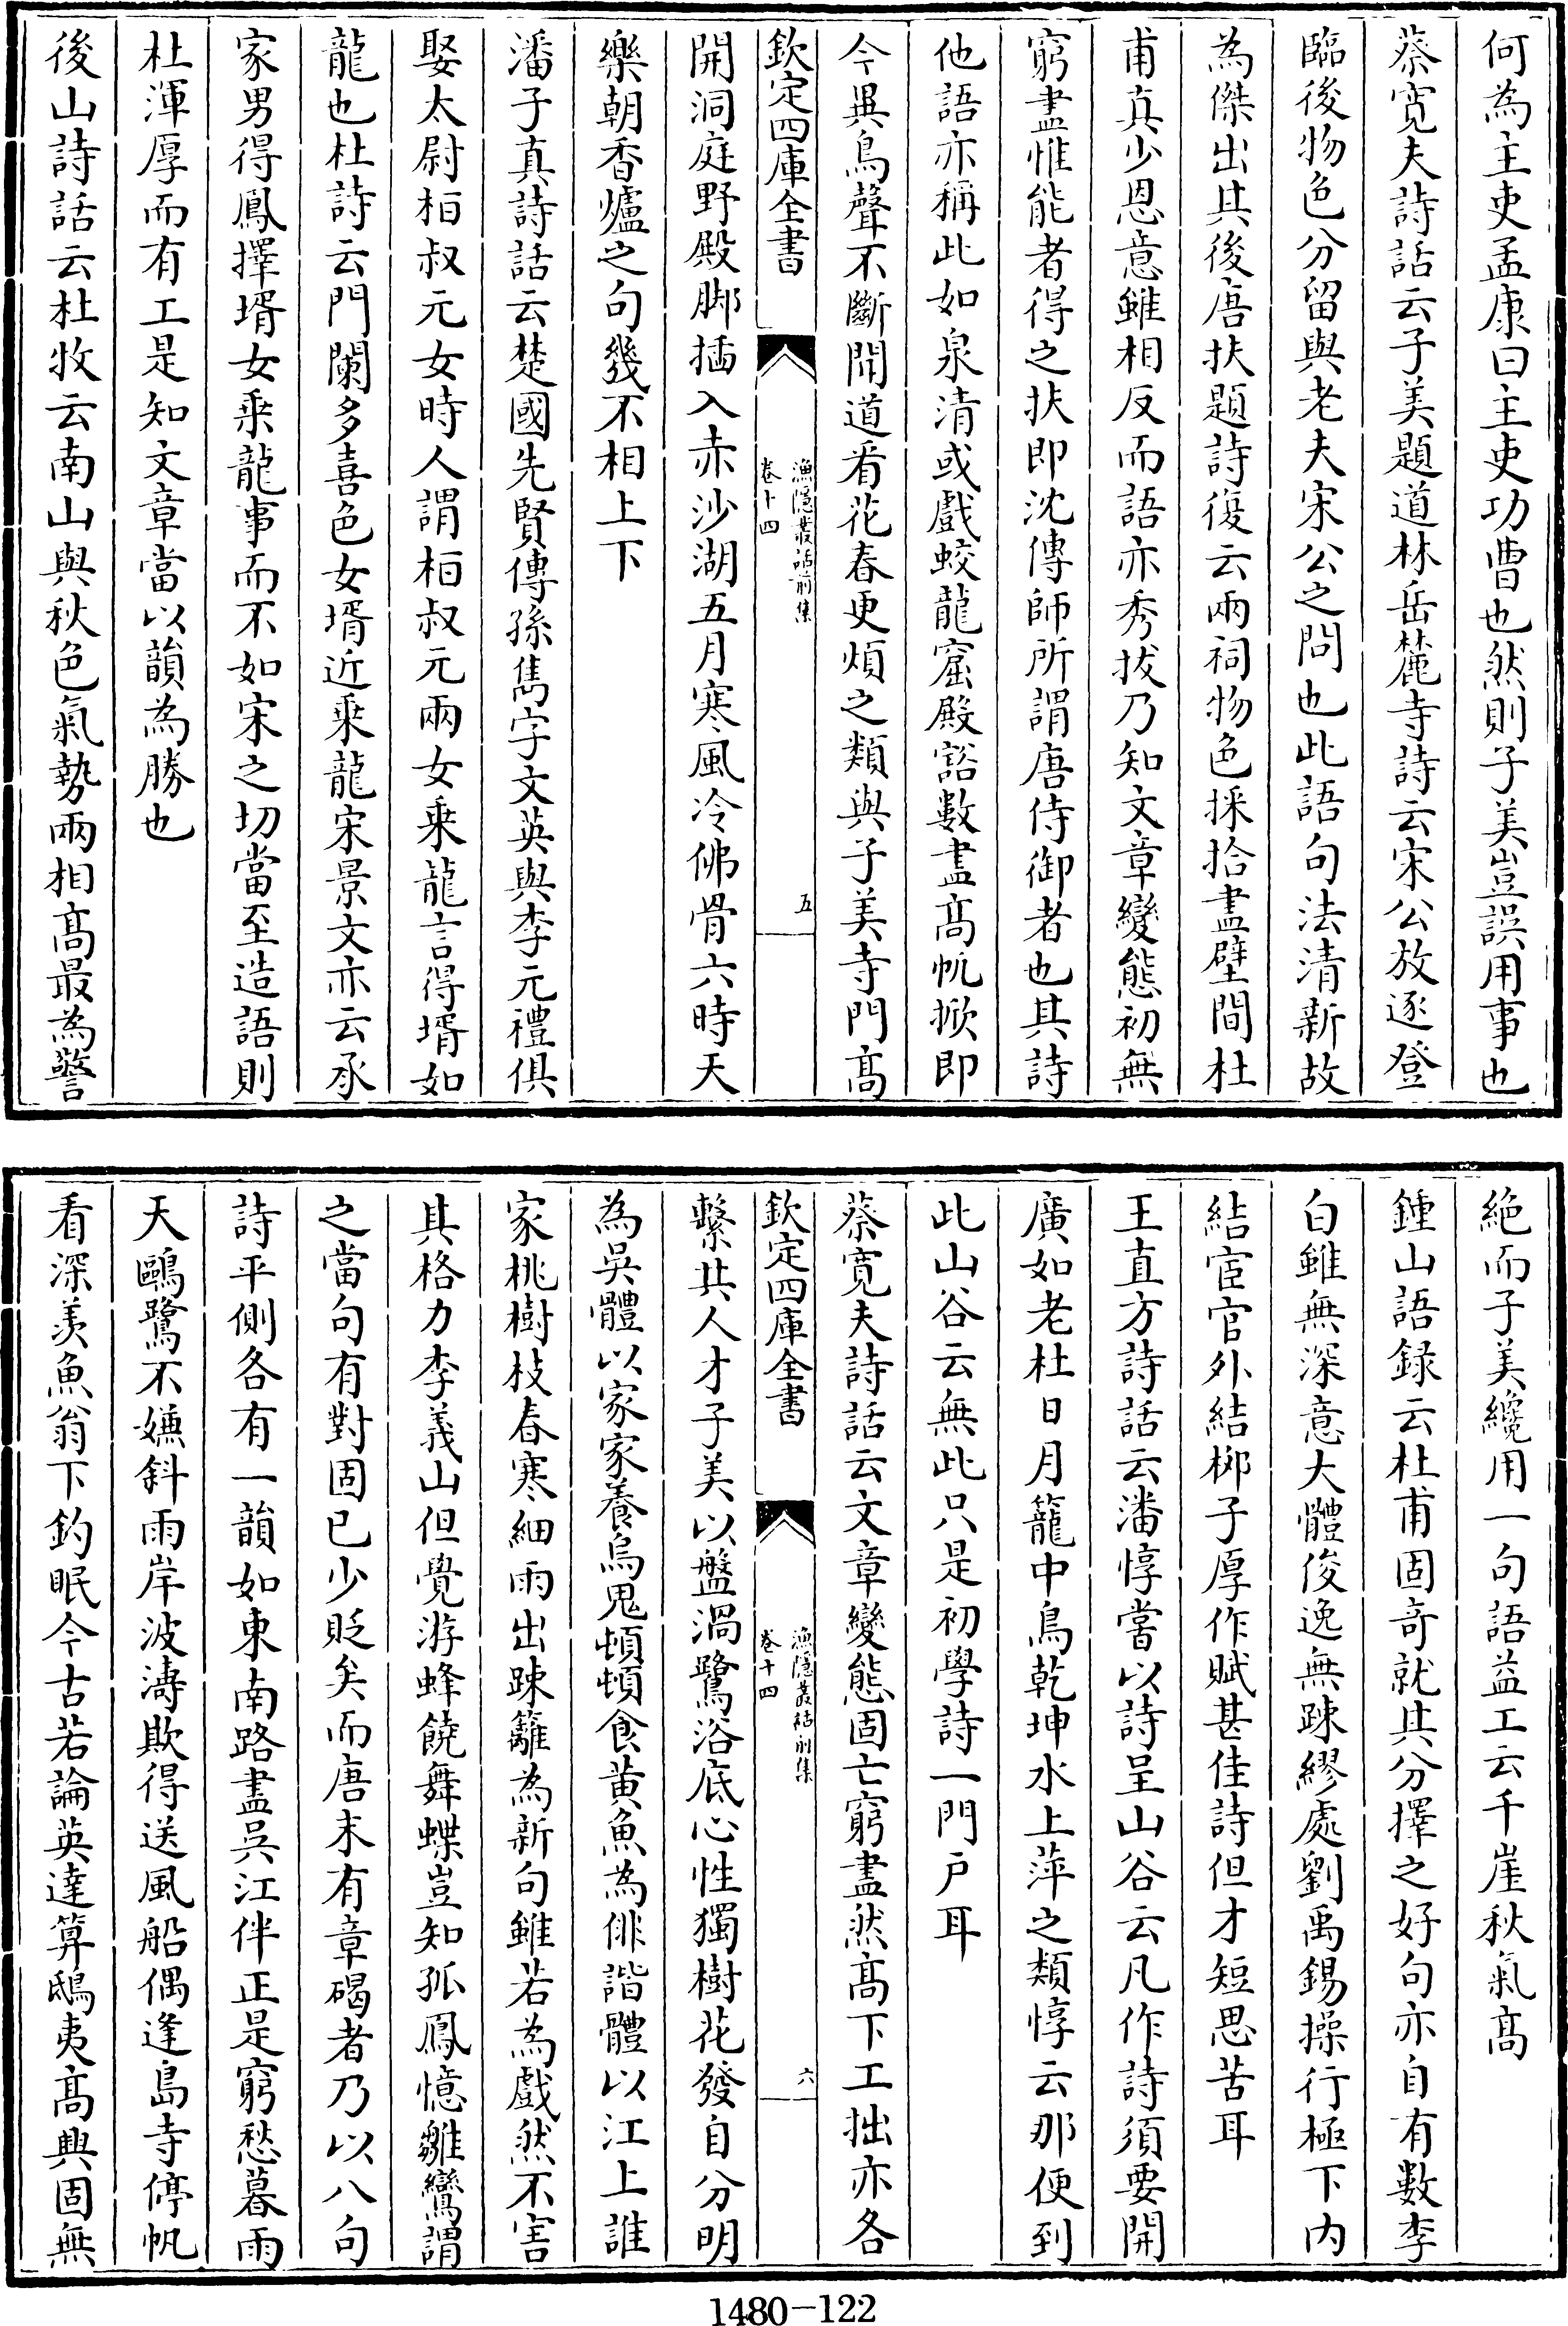 何為主吏孟康曰主吏功曹也然則子美豈誤用事也
蔡寛夫詩話云子美題道林岳麓寺詩云宋公放逐登
臨後物色分留與老夫宋公之問也此語句法清新故
為傑出其後唐扶題詩復云兩祠物色採拾盡壁間杜
甫真少恩意雖相反而語亦秀拔乃知文章變態初無
窮盡惟能者得之扶即沈傳師所謂唐侍御者也其詩
他語亦稱此如泉清或戲蛟龍窟殿豁數盡髙帆掀即
今異鳥聲不斷聞道看花春更煩之類與子美寺門髙
欽定四庫全書
漁隠叢話前集
卷十四
五
開洞庭野殿脚插入赤沙湖五月寒風冷佛骨六時天
樂朝香爐之句幾不相上下
潘子真詩話云楚國先賢傳孫雋字文英與李元禮俱
娶太尉栢叔元女時人謂栢叔元兩女乗龍言得壻如
龍也杜詩云門闌多喜色女壻近乗龍宋景文亦云承
家男得鳳擇壻女乗龍事而不如宋之切當至造語則
杜渾厚而有工是知文章當以韻為勝也
後山詩話云杜牧云南山與秋色氣勢兩相髙最為警
絶而子美纔用一句語益工云千崖秋氣髙
鍾山語録云杜甫固奇就其分擇之好句亦自有數李
白雖無深意大體俊逸無踈繆處劉禹錫操行極下内
結宦官外結栁子厚作賦甚佳詩但才短思苦耳
王直方詩話云潘惇嘗以詩呈山谷云凡作詩須要開
廣如老杜日月籠中鳥乾坤水上萍之類惇云那便到
此山谷云無此只是初學詩一門户耳
蔡寛夫詩話云文章變態固亡窮盡然髙下工拙亦各
欽定四庫全書
漁隠叢話前集
卷十四
六
繫其人才子美以盤渦鷺浴底心性獨樹花發自分明
為吳體以家家養烏鬼頓頓食黄魚為俳諧體以江上誰
家桃樹枝春寒細雨出踈籬為新句雖若為戲然不害
其格力李義山但覺游蜂饒舞蝶豈知孤鳳憶雛鸞謂
之當句有對固已少貶矣而唐末有章碣者乃以八句
詩平側各有一韻如東南路盡吳江伴正是窮愁暮雨
天鷗鷺不嫌斜雨岸波濤欺得送風船偶逢島寺停帆
看深羨魚翁下釣眠今古若論英達算鴟夷髙興固無
1480-122